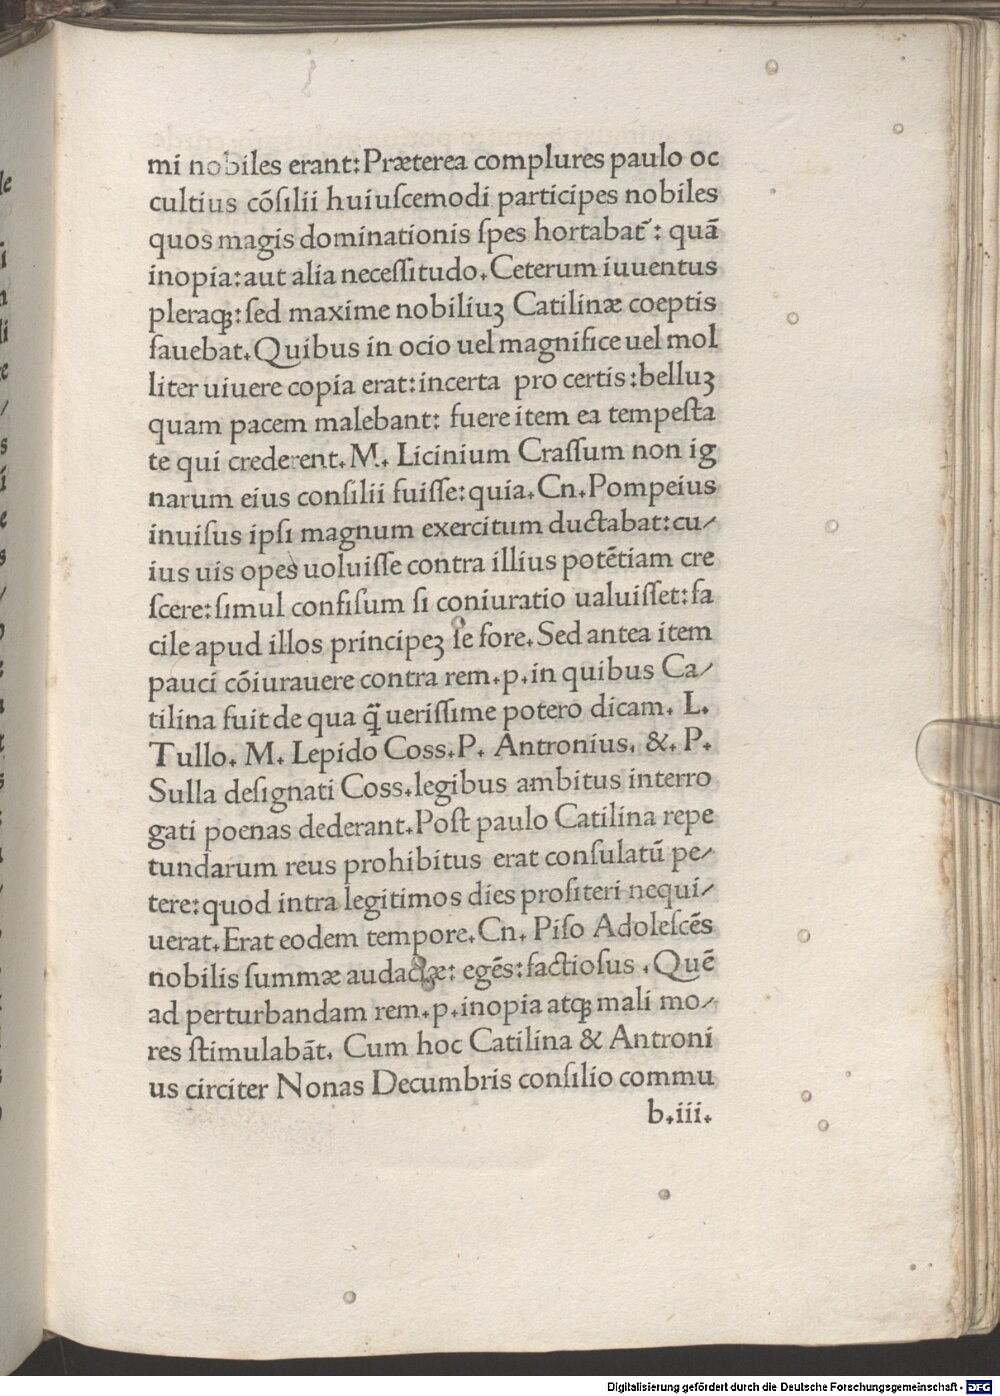 mi nobiles erant: Præterea complures paulo oc
cultius cõſilii huiuſcemodi participes nobiles
quos magis dominationis ſpes hortabat᷑: quã
inopia: aut alia neceſſitudo. Ceterum iuuentus
pleraqꝫ: ſed maxime nobiliuꝫ Catilinæ coeptis
fauebat. Quibus in ocio uel magnifice uel mol
liter uiuere copia erat: incerta pro certis: belluꝫ
quam pacem malebant: fuere item ea tempeſta
te qui crederent. M. Licinium Craſſum non ig
narum eius conſilii fuiſſe: quia. Cn. Pompeius
inuiſus ipſi magnum exercitum ductabat: cu⸗
ius uis opes uoluiſſe contra illius potẽtiam cre
ſcere: ſimul confiſum ſi coniuratio ualuiſſet: fa
cile apud illos principeꝫ ſe fore. Sed antea item
pauci cõiurauere contra rem. p. in quibus Ca⸗
tilina fuit de qua q̃ ueriſſime potero dicam. L.
Tullo. M. Lepido Coss. P. Antronius. &. P.
Sulla deſignati Coss. legibus ambitus interro
gati poenas dederant. Poſt paulo Catilina repe
tundarum reus prohibitus erat conſulatũ pe⸗
tere: quod intra legitimos dies profiteri nequi⸗
uerat. Erat eodem tempore. Cn. Piſo Adoleſcẽs
nobilis ſummæ audaciæ: egẽs: factioſus . Quẽ
ad perturbandam rem. p. inopia atqꝫ mali mo⸗
res ſtimulabãt. Cum hoc Catilina & Antroni
us circiter Nonas Decumbris conſilio commu
b.iii.
Digitalisierung gefördert durch die Deutsche Forschungsgemeinschaft - DFG